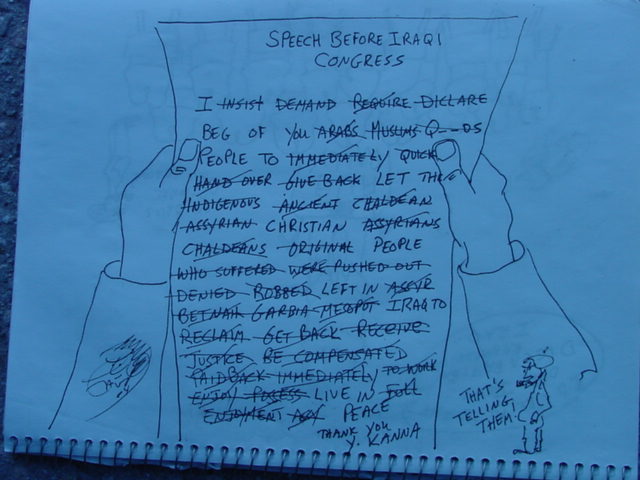 SPEECH BEFORE IRAQI
CONGRESS
I INSIST DEMAND REQUIRE DICLARE
BEG OF YOU ARABS MUSLIMS Q---DS
PEOPLE TO IMMEDIATELY QUICK
HAND OVER GIVE BACK LET THE
INDIGENOUS ANCIENT CHALDEAN
ASSYRIAN CHRISTIAN ASSYRIANS
CHALDEANS ORIGINAL PEOPLE
WHO SUFFERED WERE PUSHED OUT
DENIED ROBBED LEFT IN ASSYR
BETNAH GARBIA MESOPOT IRAQ TO
RECLAIM GET BACK RECEIVE
JUSTICE BE COMPENSATED
PAID BACK IMMEDIATELY TO WORK
ENJOY POSESS LIVE IN FULL
ENJOYMENT ANY PEACE
THANK YOU
Y. KANNA
THAT'S
TELLING
THEM!